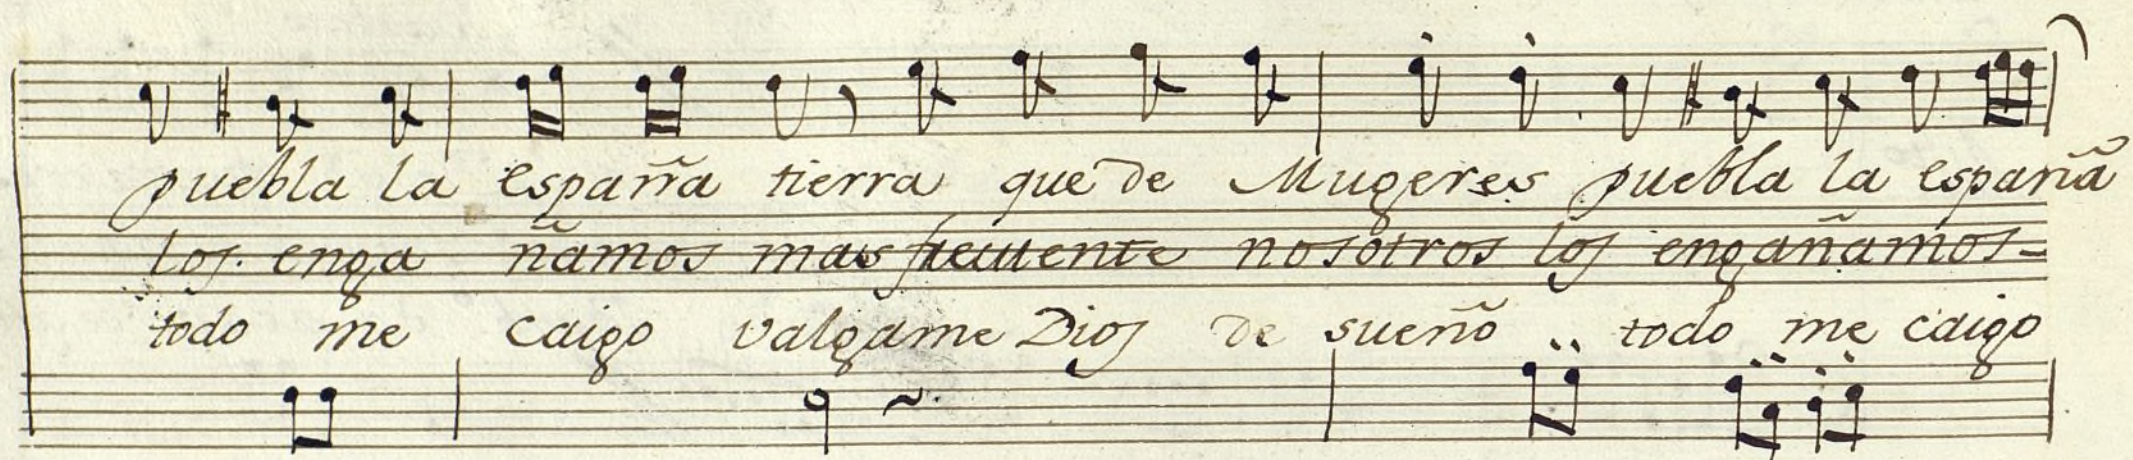 puebla la españa tierra que de Mugeres puebla la españa
los enga ñamos mas frequente nosotros los engañamos-
todo me caigo valgame Dios de sueño todo me caigo